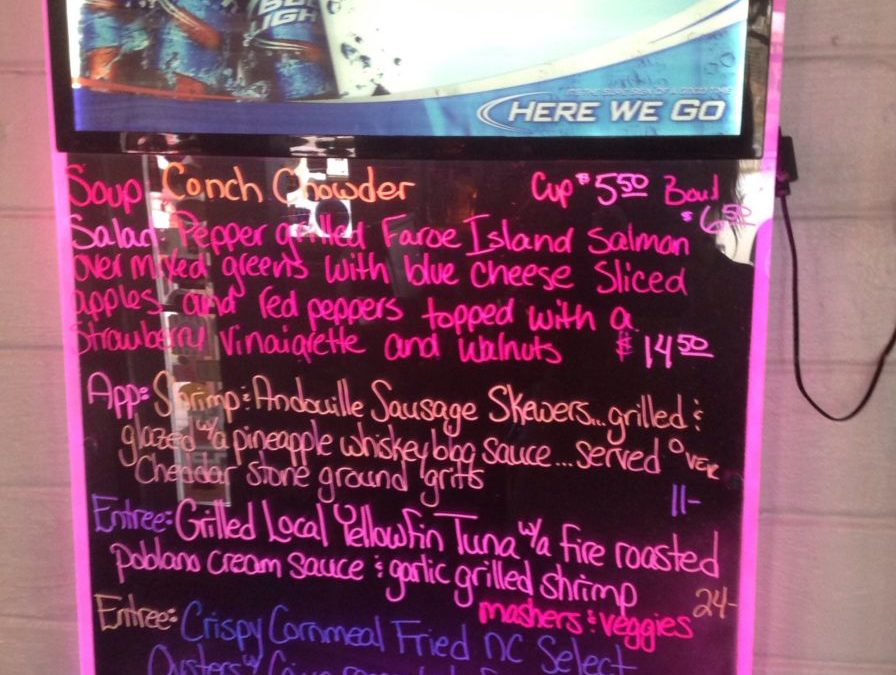 BUD
LIGH
IT'S THE SURE SIGN OF A GOOD TIME
HERE WE GO
Soup Conch Chowder Cup $5.50 Bowl
$6.50
Salad: Pepper grilled Faroe Island Salmon
over mixed greens with blue cheese Sliced
apples and red peppers topped with a
Strawberry Vinaigrette and Walnuts $14.50
App: Shrimp & Andouille Sausage Skewers...grilled &
glazed w/a pineapple whiskey bbq sauce...served over
Cheddar stone ground gritts
11-
Entree: Grilled Local Yellowfin Tuna w/a fire roasted
poblano cream sauce & garlic grilled shrimp
mashers & veggies 24-
Entree: Crispy Cornmeal Fried NC Select
Oysters w/